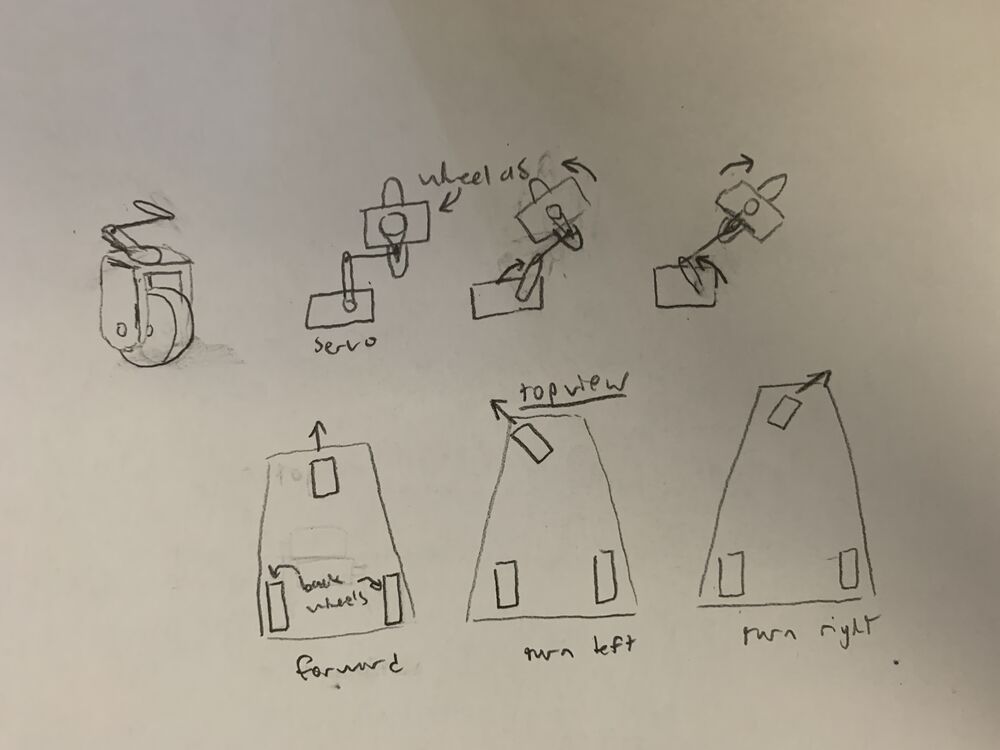 wheel as
servo
top view
back
wheels
forward
turn left
turn right